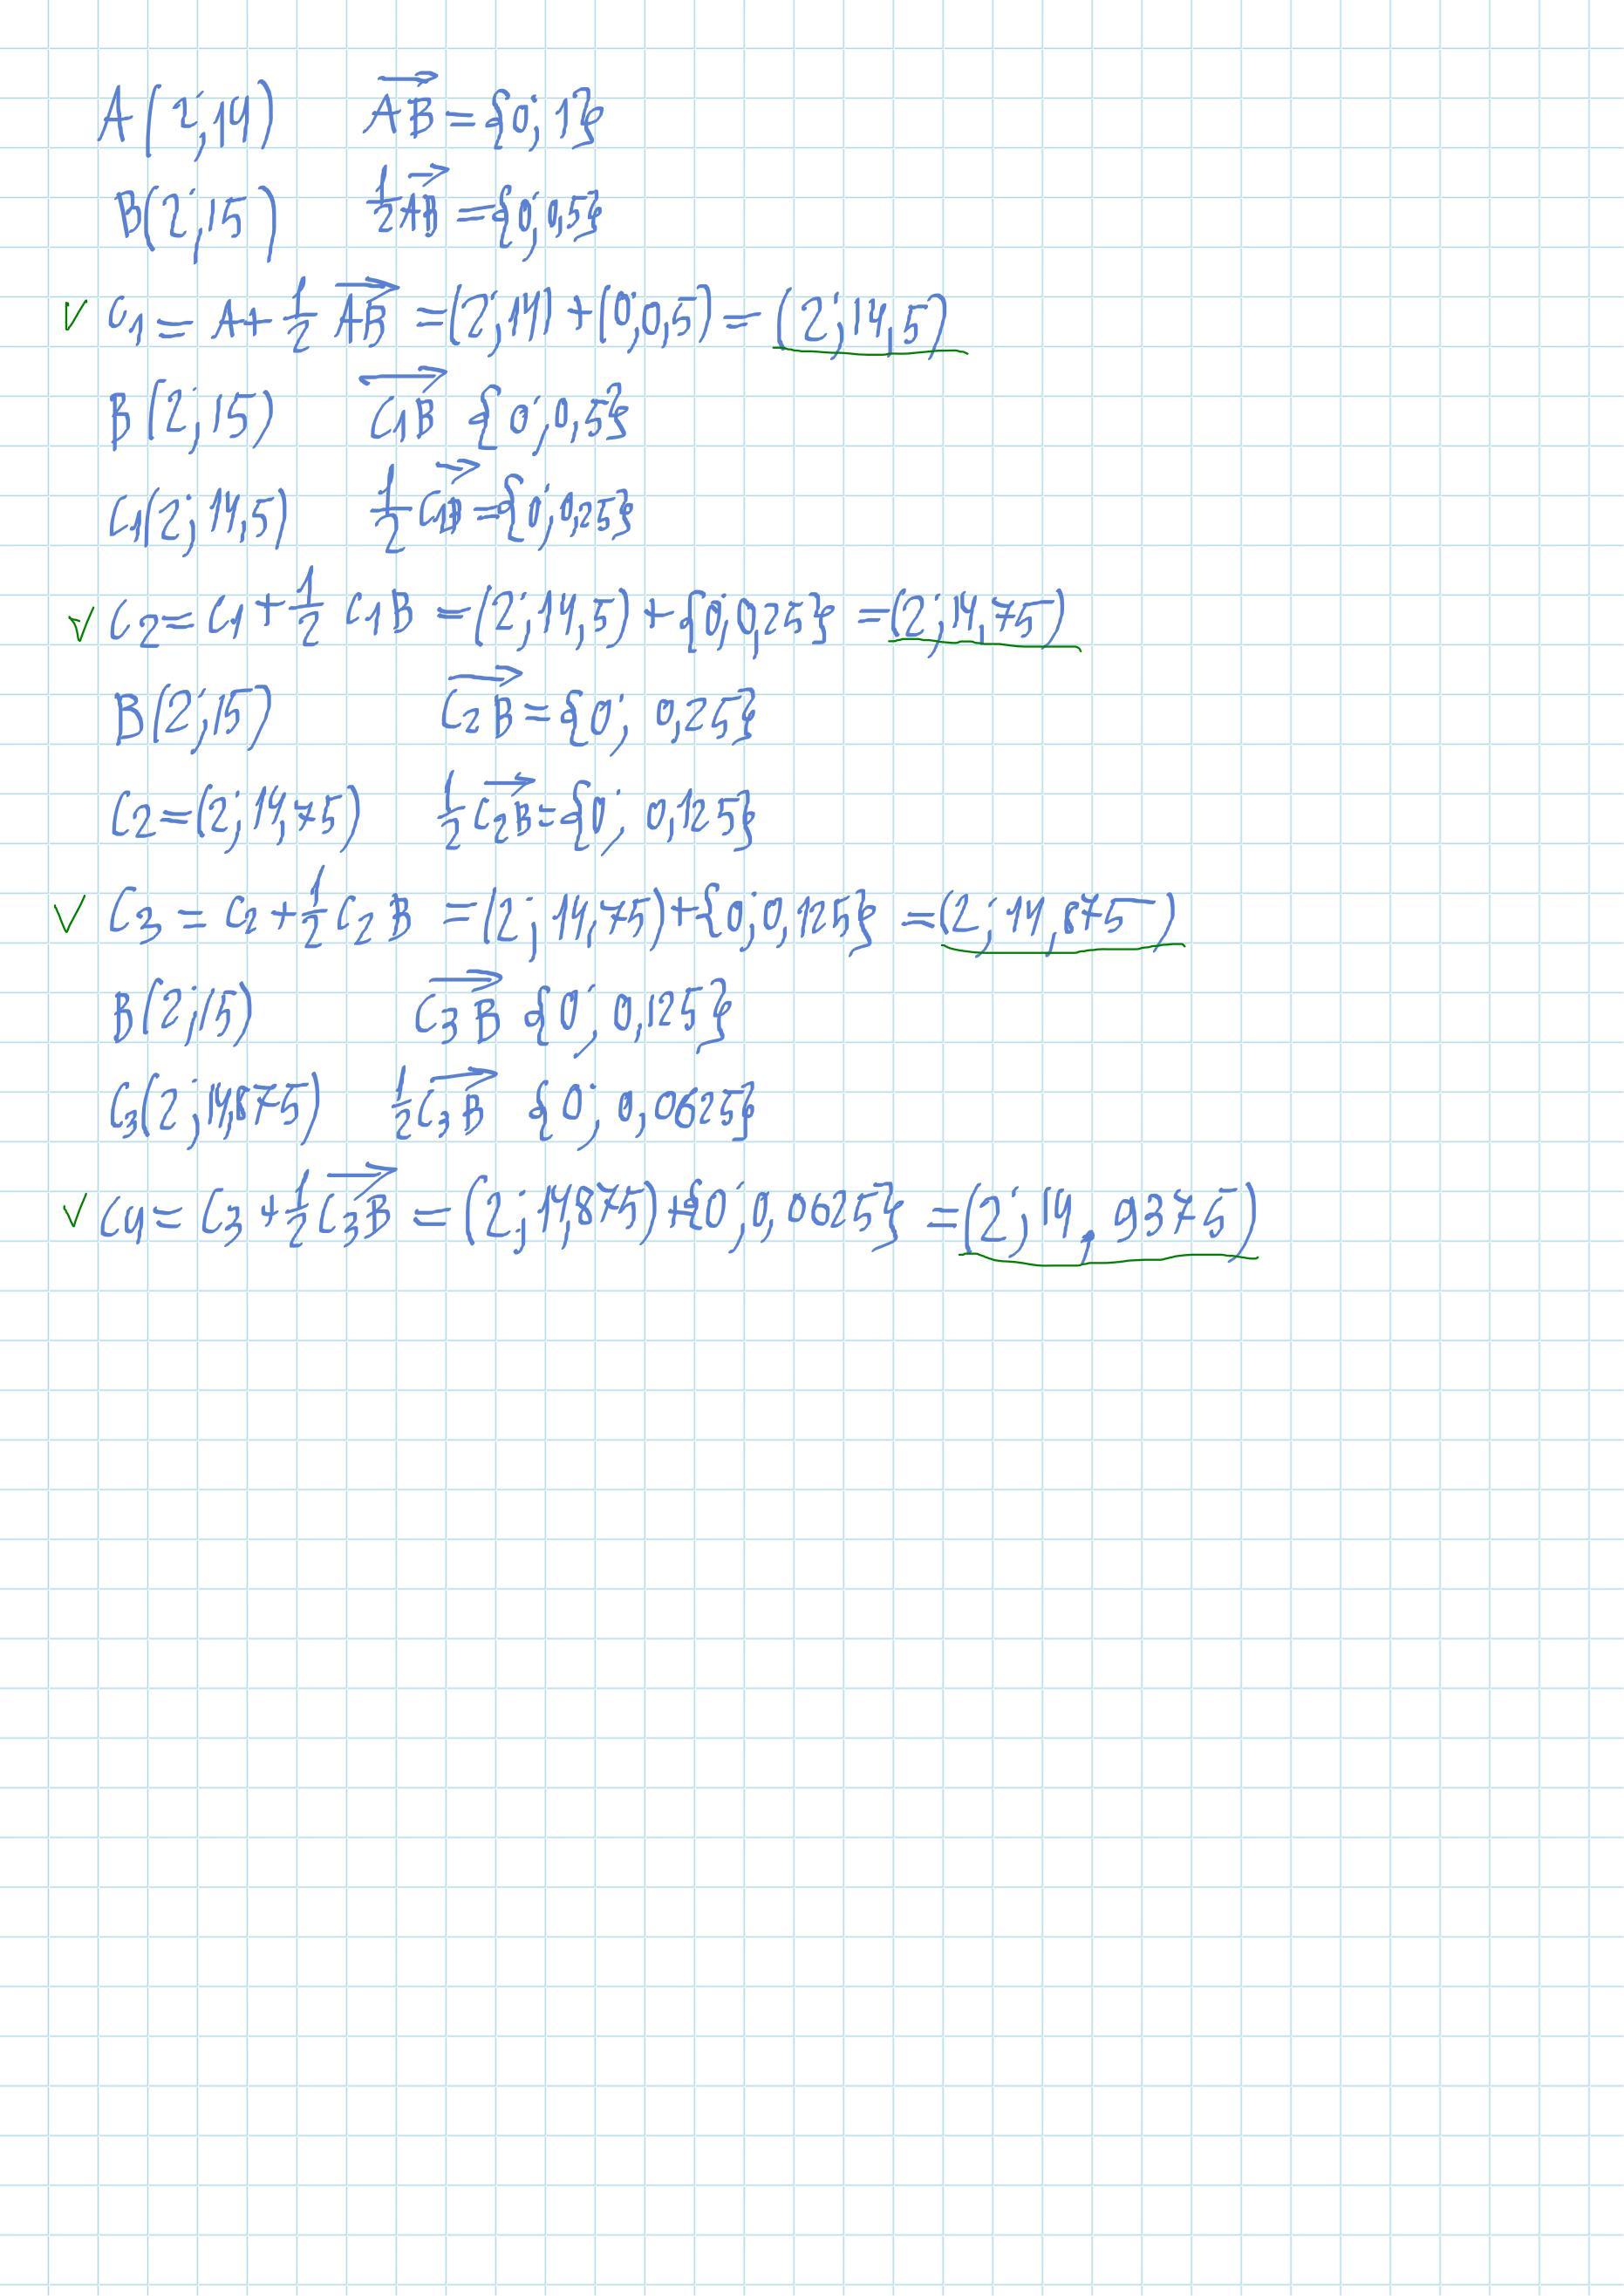 A(2; 14) AB = {0; 1}
B(2; 15) 1/2 AB = {0; 0,5}
✓ C1 = A + 1/2 AB = (2; 14) + (0; 0,5) = (2; 14,5)
B(2; 15) C1B {0; 0,5}
C1(2; 14,5) 1/2 C1B = {0; 0,25}
✓ C2 = C1 + 1/2 C1B = (2; 14,5) + {0; 0,25} = (2; 14,75)
B(2; 15) C2B = {0; 0,25}
C2 = (2; 14,75) 1/2 C2B = {0; 0,125}
✓ C3 = C2 + 1/2 C2B = (2; 14,75) + {0; 0,125} = (2; 14,875)
B(2; 15) C3B {0; 0,125}
C3(2; 14,875) 1/2 C3B {0; 0,0625}
✓ C4 = C3 + 1/2 C3B = (2; 14,875) + {0; 0,0625} = (2; 14,9375)